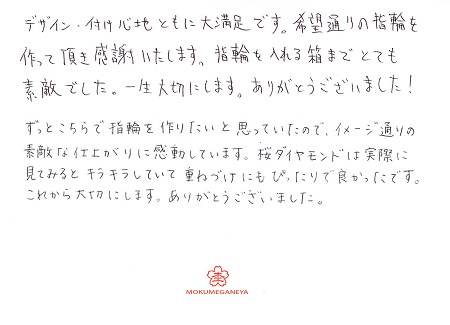 デザイン・付け心地ともに大満足です。希望通りの指輪を
作って頂き感謝いたします。指輪を入れる箱までとても
素敵でした。一生大切にします。ありがとうございました！
ずっとこちらで指輪を作りたいと思っていたので、イメージ通りの
素敵な仕上がりに感動しています。桜ダイヤモンドは実際に
見てみるとキラキラしていて重ねづけにもぴったりで良かったです。
これから大切にします。ありがとうございました。
MOKUMEGANEYA